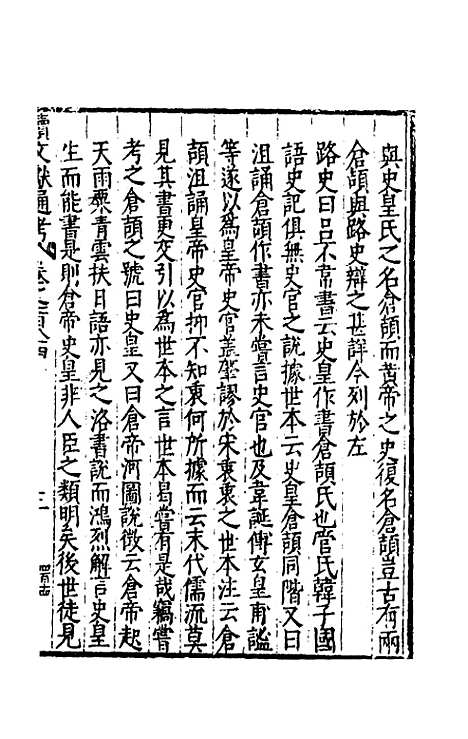 與史皇氏之名倉頡而黃帝之史復名倉頡豈古有兩
倉頡與路史辯之甚詳今列於左
路史曰呂不韋書云史皇作書倉頡氏也管氏韓子國
語史記俱無史官之說據世本云史皇倉頡同階又曰
沮誦倉頡作書亦未嘗言史官也及韋誕傳玄皇甫謐
等遂以為皇帝史官蓋繆於宋衷衷之世本注云倉
頡沮誦皇帝史官抑不知衷何所據而云末代儒流莫
見其書更交引以為世本之言世本曷嘗有是哉竊嘗
考之倉頡之號曰史皇又曰倉帝河圖說徵云倉帝起
天雨粟青雲扶日語亦見之洛書說而鴻烈解言史皇
生而能書是則倉帝史皇非人臣之類明矣後世徒見
續文獻通考 卷之一百八十四 三